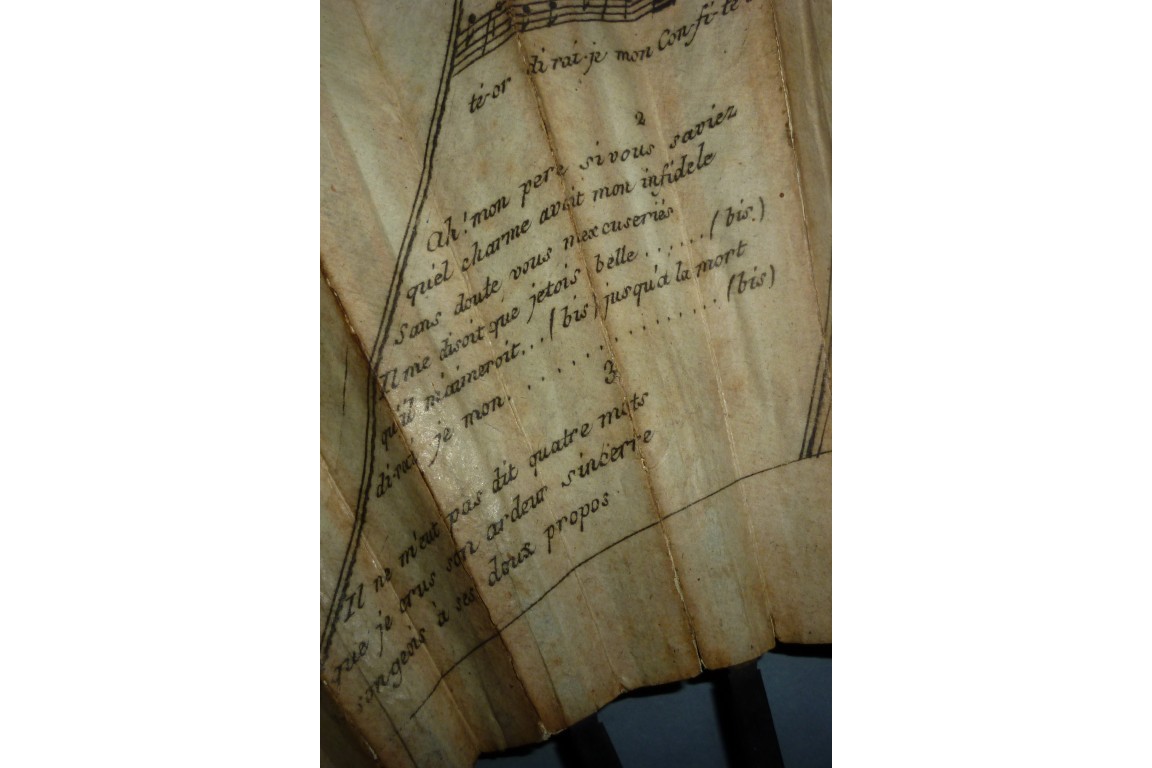 ti-or dirai-je mon Con-fi-te-
2
Ah! mon pere si vous saviez
qu'el charme avoit mon infidele
sans doute vous m'excuseriés
Il me disoit que jetois belle ...... (bis.)
qu'il m'aimeroit... (bis) jusqu'a la mort
dirai je mon. . . . . . . . . . . . . . . (bis)
3
Il ne m'eut pas dit quatre mots
que je crus son ardeur sincerre
songeois à ses doux propos